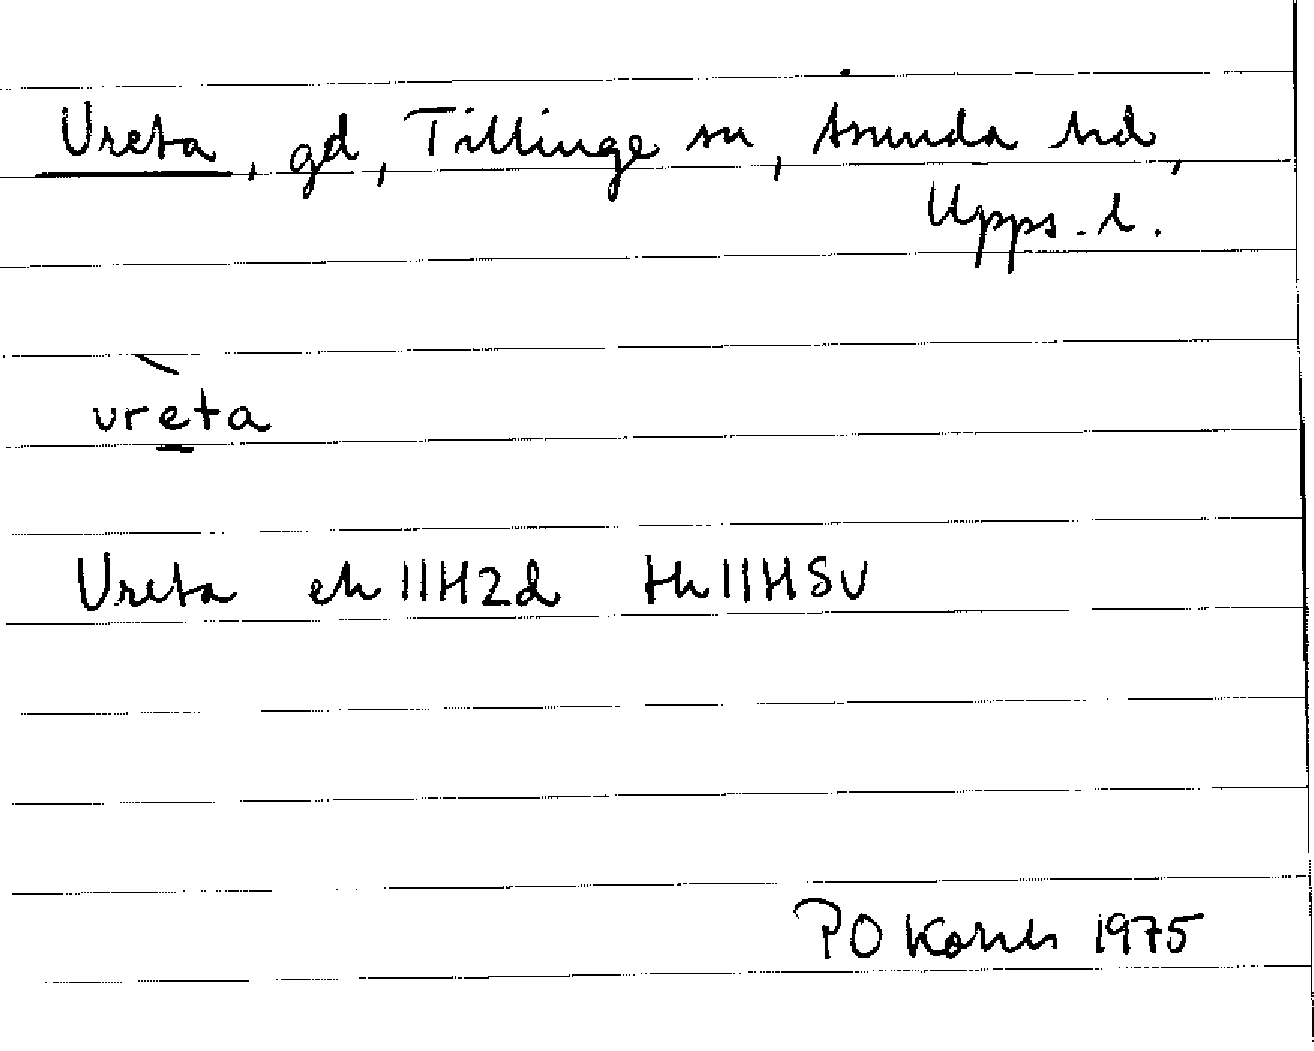 Vreta, gd, Tillinge sn, Åsunda hd,
Upps. l.
vrèta
Vreta ek 11H2d tk 11HSV
P O 1975